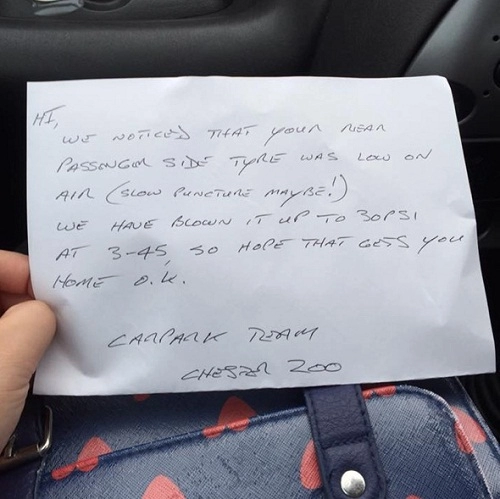 HI,
WE NOTICED THAT YOUR REAR
PASSENGER SIDE TYRE WAS LOW ON
AIR (SLOW PUNCTURE MAYBE!)
WE HAVE BLOWN IT UP TO 30PSI
AT 3-45, SO HOPE THAT GETS YOU
HOME O.K.
CARPARK TEAM
CHESTER ZOO